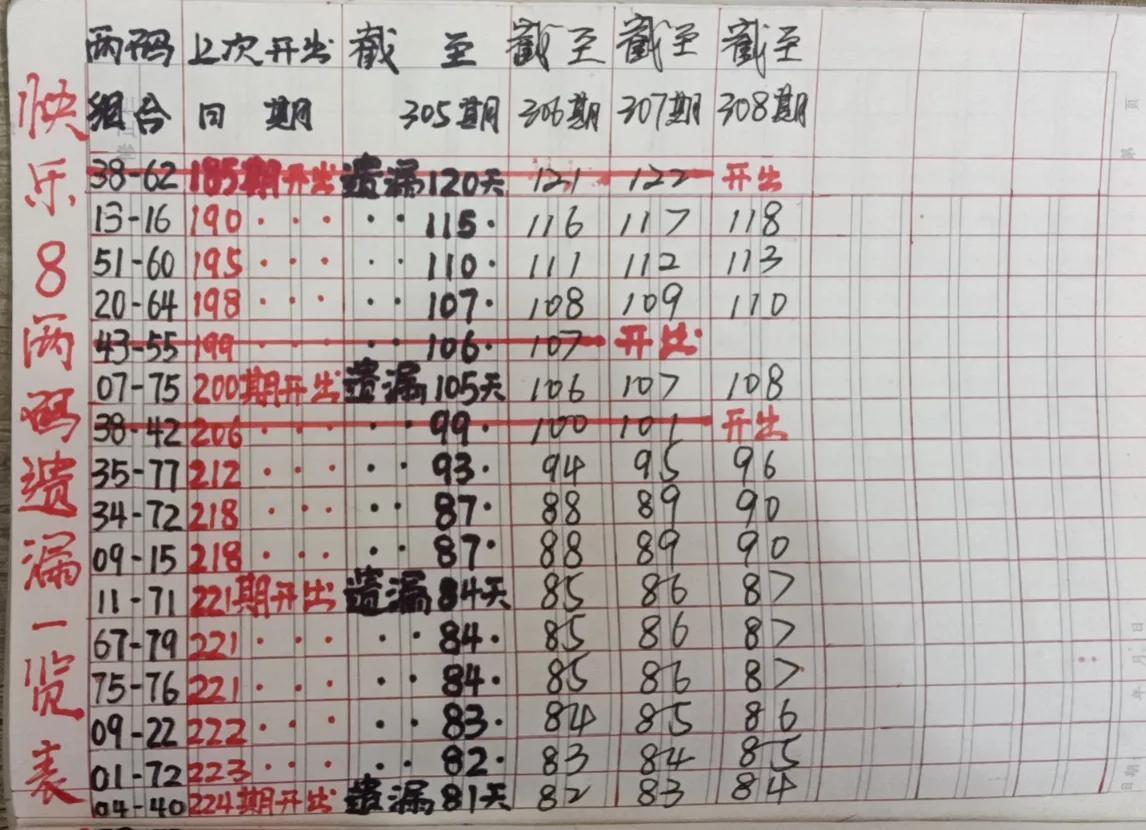 快乐8两码遗漏一览表
两码 上次开出 截至 截至 截至 截至
组合 日期 305期 306期 307期 308期
38-62 185期开出 遗漏120天 121 122 开出
13-16 190・・・ ・・115・ 116 117 118
51-60 195・・・ ・・110・ 111 112 113
20-64 198・・・ ・・107・ 108 109 110
43-55 199・・・ ・・106・ 107 开出・
07-75 200期开出 遗漏105天 106 107 108
38-42 206・・・ ・・99・ 100 101 开出
35-77 212・・・ ・・93・ 94 95 96
34-72 218・・・ ・・87・ 88 89 90
09-15 218・・・ ・・87・ 88 89 90
11-71 221期开出 遗漏84天 85 86 87
67-79 221・・・ ・・84・ 85 86 87
75-76 221・・・ ・・84・ 85 86 87
09-22 222・・・ ・・83・ 84 85 86
01-72 223・・・ ・・82・ 83 84 85
04-40 224期开出 遗漏81天 82 83 84